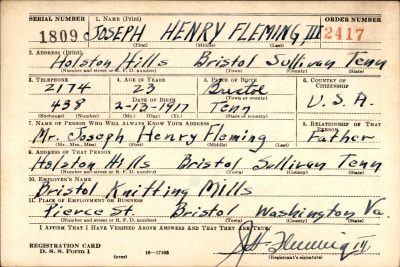 SERIAL NUMBER 1. NAME (Print) ORDER NUMBER
1809 JOSEPH HENRY FLEMING, III 2417
(First) (Middle) (Last)
2. ADDRESS (Print)
Holston Hills Bristol Sullivan Tenn
(Number and street or R. F. D. number) (Town) (County) (State)
3. TELEPHONE 4. AGE IN YEARS 5. PLACE OF BIRTH 6. COUNTRY OF CITIZENSHIP
2174 23 Bristol
(Town or county)
438 DATE OF BIRTH 2-13-1917 Tenn U.S.A.
(Exchange) (Number) (Mo.) (Day) (Yr.) (State or country)
7. NAME OF PERSON WHO WILL ALWAYS KNOW YOUR ADDRESS 8. RELATIONSHIP OF THAT PERSON
Mr. Joseph Henry Fleming Father
(Mr., Mrs., Miss) (First) (Middle) (Last)
9. ADDRESS OF THAT PERSON
Holston Hills Bristol Sullivan Tenn
(Number and street or R. F. D. number) (Town) (County) (State)
10. EMPLOYER'S NAME
Bristol Knitting Mills
11. PLACE OF EMPLOYMENT OR BUSINESS
Pierce St. Bristol Washington Va.
(Number and street or R. F. D. number) (Town) (County) (State)
I AFFIRM THAT I HAVE VERIFIED ABOVE ANSWERS AND THAT THEY ARE TRUE.
REGISTRATION CARD
D. S. S. Form 1 (over) 16—17105
J.H. Fleming III.
(Registrant's signature)